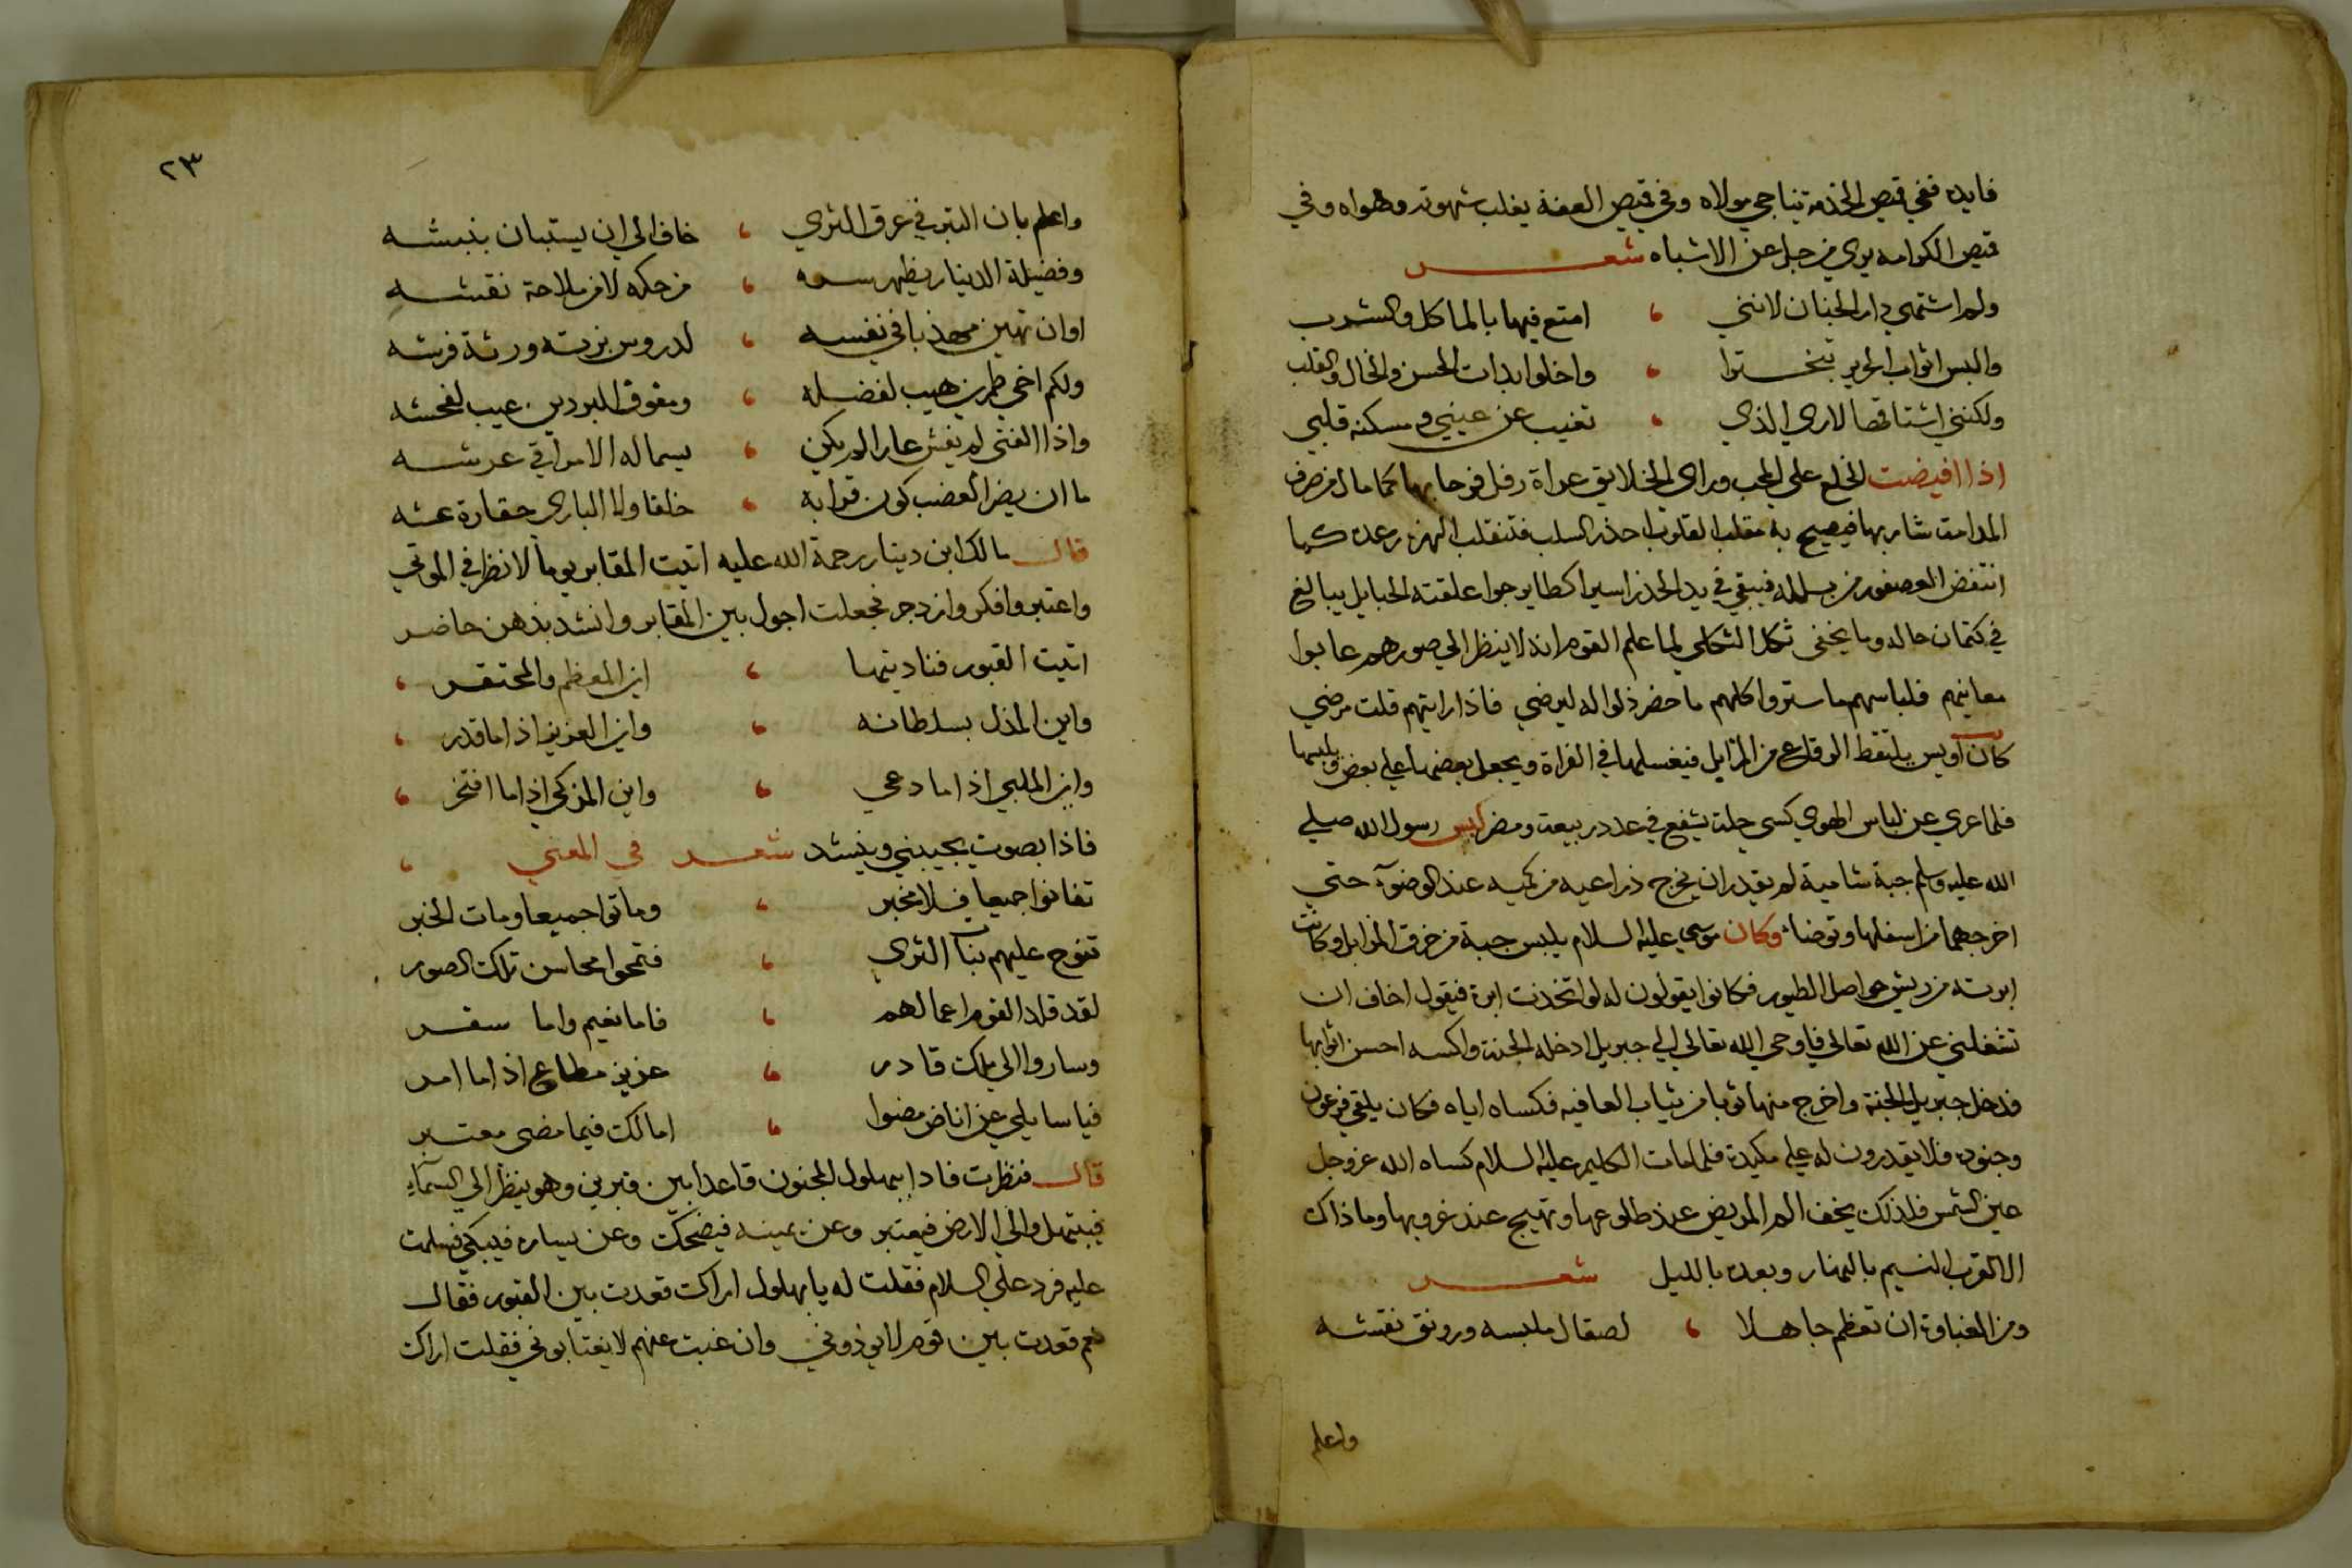 فايده ففي قميص الخدمة يناجي مولاه وفي قميص العفة يغلب شهوته وهواه وفي
قميص الكرامه يري من جل عن الاشباه شعر
ولم اشتهي دار الجنان لانني ، امتع فيها بالماكل والشرب
والبس اثواب الحرير تبخترا ، واخلوا بدات الحسن والخال والقلب
ولكنني اشتاقها لاري الذي ، تغيب عن عيني ومسكنه قلبي
اذا افيضت الخلع علي المحب وراي الخلايق عراة رفل فرحا بها كما مال من صرف
المدامة شاربها فيصيح به مقلب القلوب احذر السلب فتنقلب الهزه رعده كما
انتفض العصفور من بلله فيبقي في يد الحذر اسيرا كطاير جوا علقته الحبايل يبالغ
في كتمان حاله وما يخفى ثكل الثكلى لما علم القوم انه لا ينظر الي صورهم عابوا
معانيهم فلباسهم ما ستر واكلهم ما حضر ذلوا له ليرضي فاذا رايتهم قلت مرضي
كان اويس يلتقط الرقاع من المزابل فيغسلها في الفراة ويجعل بعضها علي بعض ويلبسها
فلما عري عن لباس الهوي كسي حلة يشفع في عدد ربيعة ومضر لبس رسول الله صلي
الله عليه وسلم جبة شامية لم يقدر ان يخرج ذراعيه من كميه عند الوضوء حتي
اخرجهما من اسفلها وتوضا وكان موسي عليه السلام يلبس جبة من خرق المزابل وكانت
ابرته من ريش حواصل الطيور فكانوا يقولون له لو اتخذت ابرة فيقول اخاف ان
تشغلني عن الله تعالي فاوحي الله تعالي الي جبريل ادخله الجنة واكسه احسن اثوابها
فدخل جبريل الجنة واخرج منها ثوبا من ثياب العافيه فكساه اياه فكان يلقي فرعون
وجنوده فلا يقدرون له علي مكيدة فلما مات الكليم عليه السلام كساه الله عز وجل
عين الشمس فلذلك يخف الم المريض عند طلوعها وتهيج عند غروبها وما ذاك
الا لقرب النسيم بالنهار وبعده بالليل شعر
ومن الغباوة ان تعظم جاهلا ، لصقال ملبسه ورونق نقشه
واعلم
٢٣
واعلم بان التبر في عرق الثري ، خاف الي ان يستبان بنبشه
وفضيلة الدينار يظهر سره ، من حكه لا من ملاحة نقشه
اوان تهين مهذبا في نفسه ، لدروس بزته ورثة فرشه
ولكم اخي طمرين هيب لفضله ، ومفوق البردين عيب لفحشه
واذا الفتى لم يغش عارا لم يكن ، يسماله الا مراقي عرشه
ما ان يضر العضب كون قرابه ، خلقا ولا البازي حقارة عشه
قال مالك ابن دينار رحمة الله عليه اتيت المقابر يوما لانظر في الموتي
واعتبر وافكر وازدجر فجعلت اجول بين المقابر وانشد بذهن حاضر
اتيت القبور فناديتها ، اين المعظم والمحتقر ،
واين المذل بسلطانه ، واين العزيز اذا ما قدر ،
واين الملبي اذا ما دعي ، واين المزكي اذا ما افتخر ،
فاذا بصوت يجيبني وينشد شعر في المعني ،
تفانوا جميعا فلا مخبر ، وماتوا جميعا ومات الخبر
تنوح عليهم بنات الثرى ، فتمحوا محاسن تلك الصور
لقد قلد القوم اعمالهم ، فاما نعيم واما سقر
وساروا الي ملك قادر ، عزيز مطاع اذا ما امر
فيا سايلي عن اناس مضوا ، امالك فيما مضى معتبر
قال فنظرت فاذا ببهلول المجنون قاعدا بين قبرين وهو ينظر الي السماء
فيبتهل والي الارض فيعتبر وعن يمينه فيضحك وعن يساره فيبكي فسلمت
عليه فرد علي السلام فقلت له يا بهلول اراك قعدت بين القبور فقال
نعم قعدت بين قوم لا يوذوني وان غبت عنهم لا يغتابوني فقلت اراك